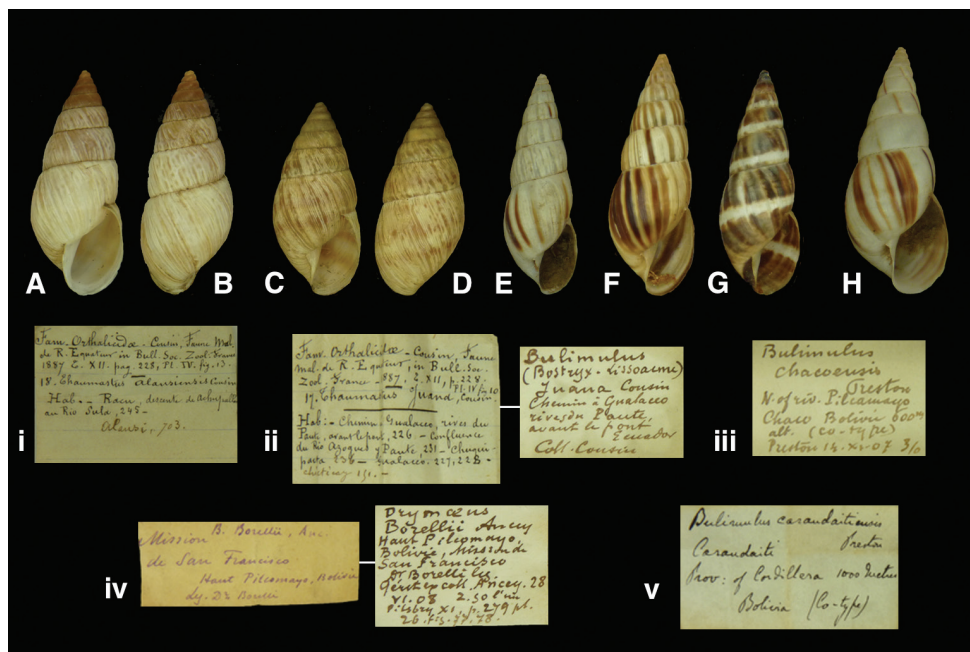 A B C D E F G H
i
Fam. Orthalicidae - Cousin, Faune Mal.
de R. Equateur in Bull. Soc. Zool. France
1887 T. XII. pag. 228, Pl. IV. fig. 13.
18. Thaumastus alausiensis Cousin
Hab. - descente de
au Rio Sula, 245 -
Alausi, 703.
ii
Fam. Orthalicidae - Cousin, Faune
mal. de R. Equateur, in Bull. Soc.
Zool. France - 887, T. XII, p. 228
Pl. IV f. 10
19. Thaumatus Juana, Cousin.
Hab: - Chemin, Gualaceo, rives du
Paute, avant le pont, 226 - Confluence
du Rio Azogues y Paute, 231 -
236 - Gualaceo. 227, 228 -
151. -
Bulimulus
(Bostryx - Lissoacme)
Juana Cousin
Chemin à Gualaceo
rives du Paute,
avant le pont
Ecuador
Coll. Cousin
iii
Bulimulus
chacoensis
Preston
N. of riv. Pilcomayo
Chaco Bolivi 600 m
alt. (co-type)
Preston 14. XI. 07 3/0
iv
Mission B. Borelli,
de San Francisco
Haut Pilcomayo, Bolivie
Lg. Dr Borelli
Drymaeus
Borellii Ancey
Haut Pilcomayo,
Bolivia, Mission de
San Francisco
Dr Borelli lg.
Geret ex coll. Ancey. 28
VI. 08 2.50 l'un
Pilsbry XI, p. 279 pl.
26. fig. 77, 78.
v
Bulimulus carandaitiensis
Preston
Carandaiti
Prov: of Cordillera 1000 metres
Bolivia (Co-type)